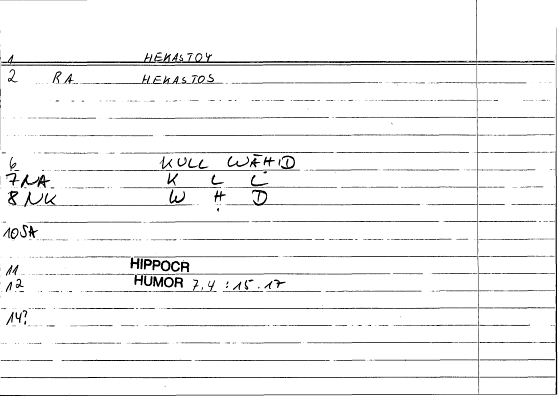 1 HEKASTOY
2 RA HEKASTOS
6 KULL WĀḤID
7 NA K L L
8 NK W Ḥ D
10 SA
11 HIPPOCR
12 HUMOR 7.4 : 15.17
14?